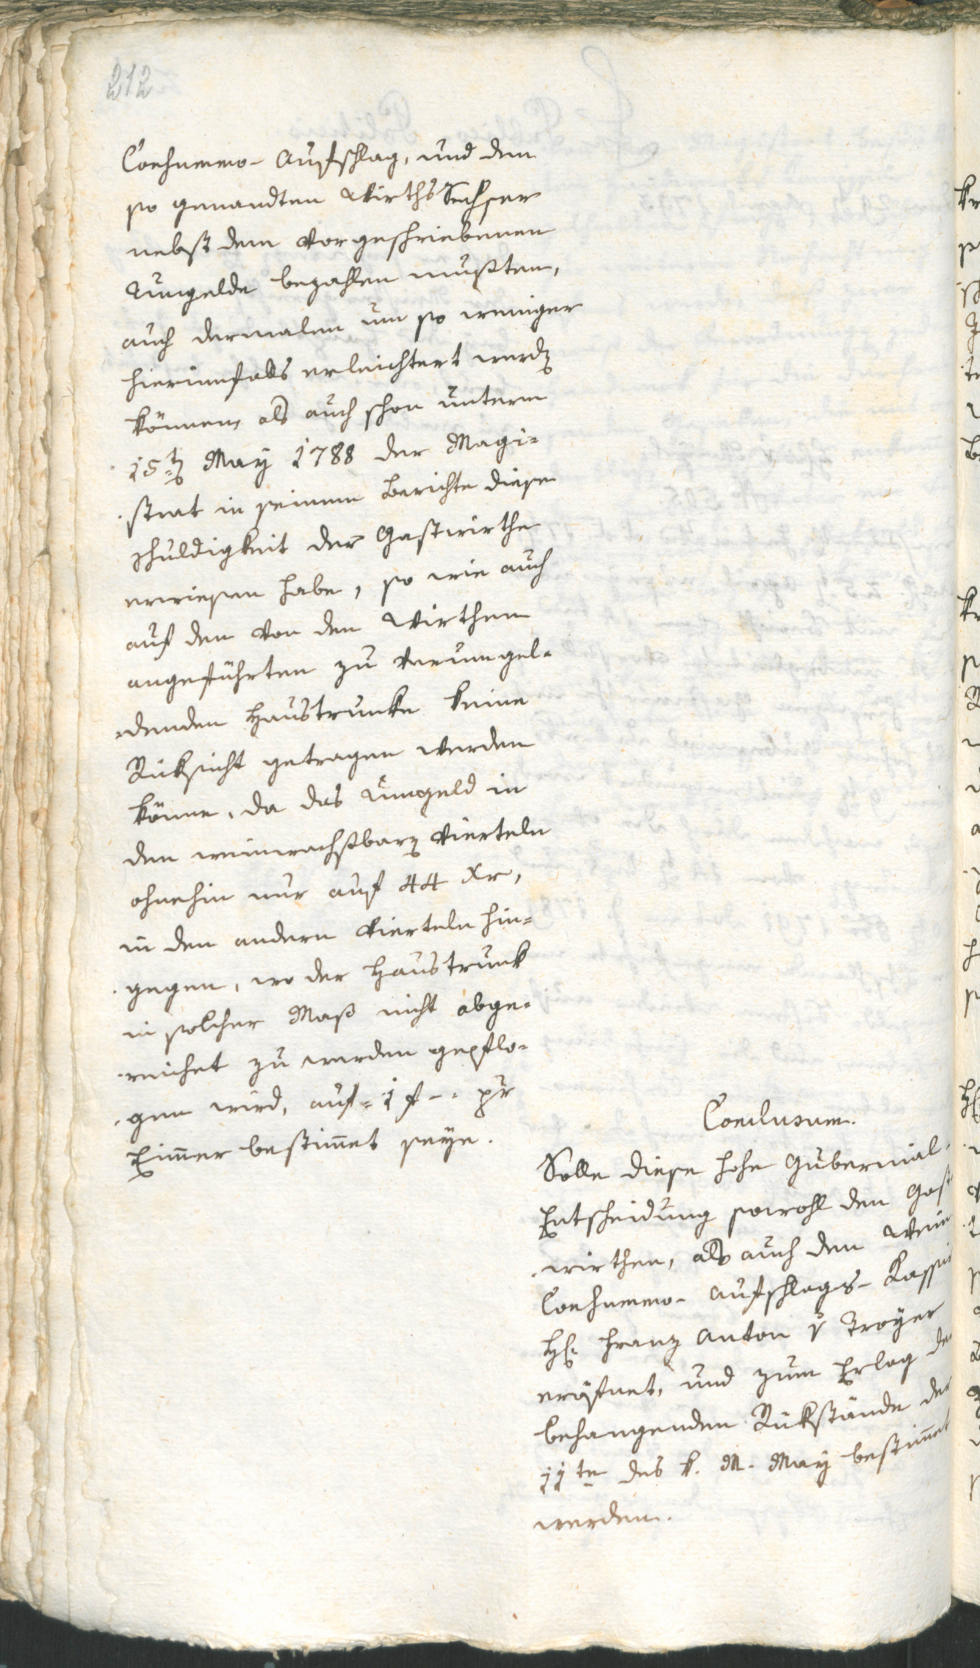 212
Consummo- Aufschlag, und dem
so genandten WirthsSechser
nebst dem Vorgeschriebenen
Umgelde bezahlen mußten,
auch dermalen um so weniger
hierinnfals erleichtert werdn
können, als auch schon unterm
15tn May 1788 der Magi-
strat in seinem Berichte diese
Schuldigkeit der Gastwirthe
erwiesen habe, so wie auch
auf den von den Wirthen
angeführten zu verumgel-
denden Haustrunke keine
Rüksicht getragen werden
könne, da das Umgeld in
den weinwachstbarn Vierteln
ohnehin nur auf 44 Xr,
in den andern Vierteln hin-
gegen, wo der Haustrunk
in solcher Maß nicht abge-
reichet zu werden gepflo-
gen wird, auf 1 f -. pr
Eimmer bestimmet seye.
Conclusum.
Solle diese hohe Gubernial-
Entscheidung sowohl den Gast
wirthen, als auch dem Wein
Consummo- Aufschlags- Kassier
H: Franz Anton v Troyer
eröfnet, und zum Erlag der
behangenden Rükstände der
11te des k. M. May bestimmet
werden.